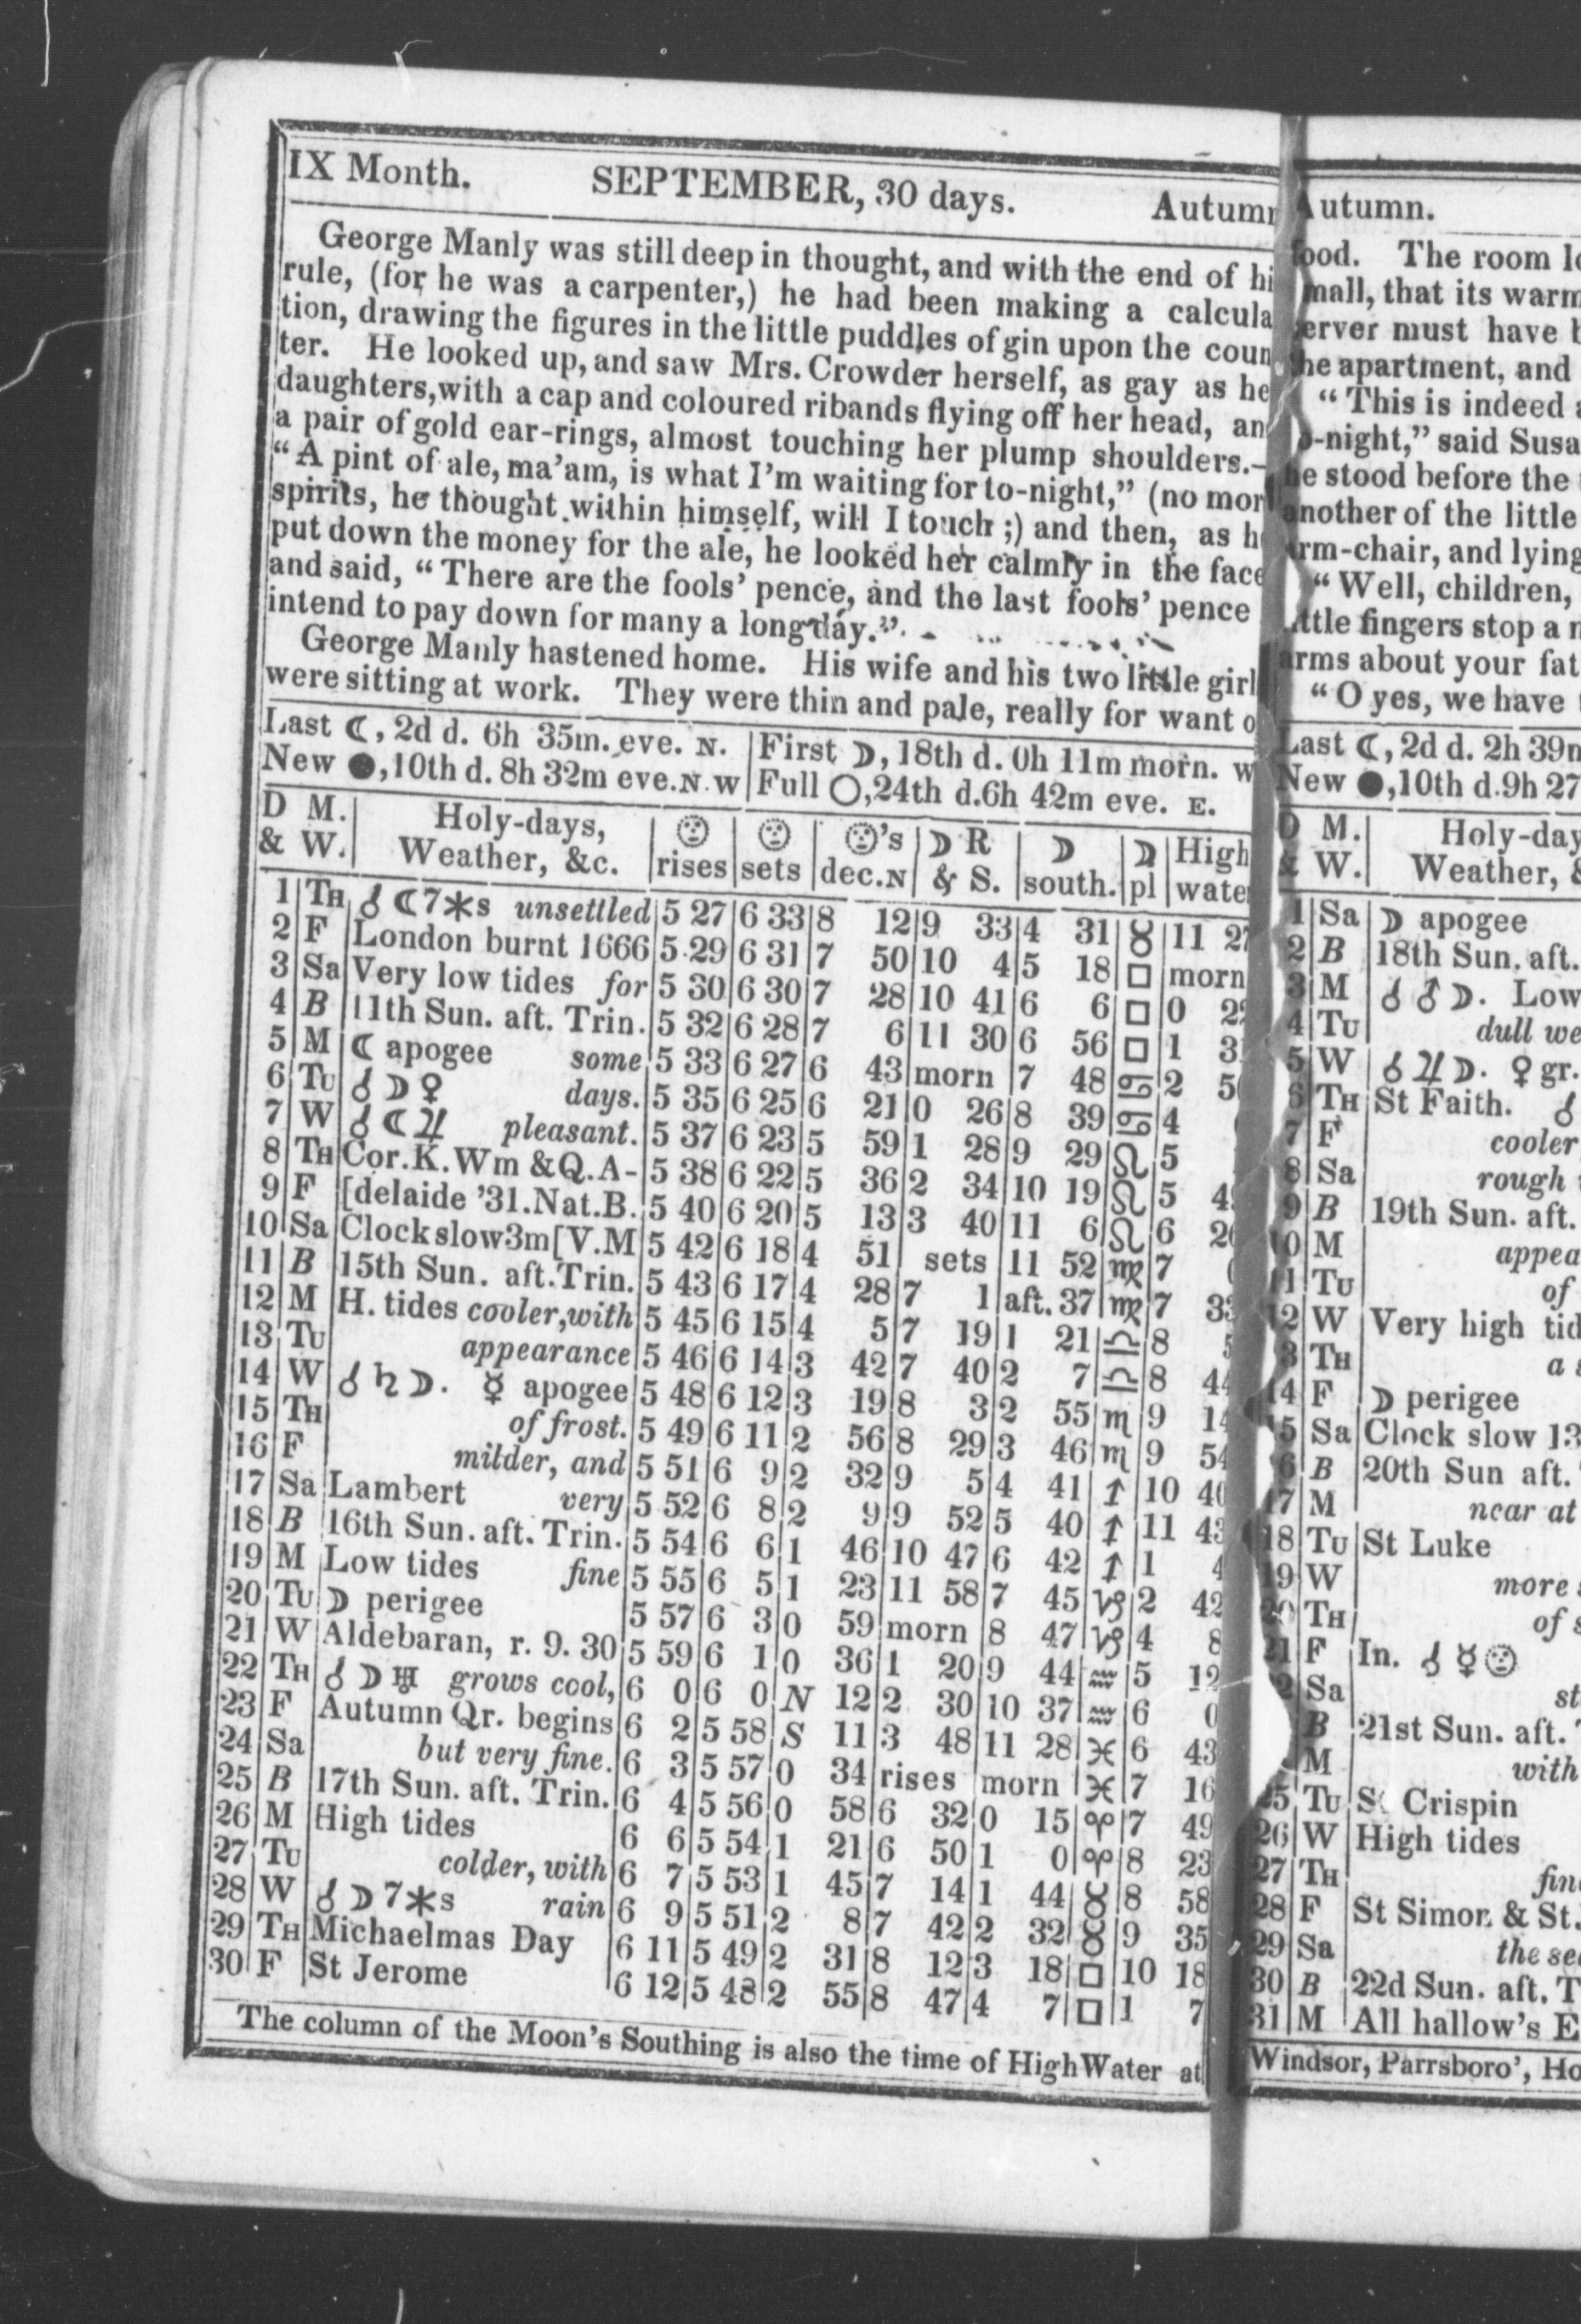 IX Month. SEPTEMBER, 30 days. Autum
George Manly was still deep in thought, and with the end of hi
rule, (for he was a carpenter,) he had been making a calcula
tion, drawing the figures in the little puddles of gin upon the coun
ter. He looked up, and saw Mrs. Crowder herself, as gay as he
daughters, with a cap and coloured ribands flying off her head, an
a pair of gold ear-rings, almost touching her plump shoulders.—
“A pint of ale, ma'am, is what I'm waiting for to-night,” (no mor
spirits, he thought within himself, will I touch ;) and then, as h
put down the money for the ale, he looked her calmly in the face
and said, “There are the fools' pence, and the last fools' pence
intend to pay down for many a long day.”
George Manly hastened home. His wife and his two little girl
were sitting at work. They were thin and pale, really for want o
Last ☾, 2d d. 6h 35m. eve. N. | First ☽, 18th d. 0h 11m morn. W
New ●, 10th d. 8h 32m eve. N. W | Full ○, 24th d. 6h 42m eve. E.
D M. | Holy-days, | ☉ | ☉ | ☉'s | ☽ R | ☽ | ☽ | High
& W. | Weather, &c. | rises | sets | dec. N | & S. | south. | pl | wate
1 | TH | ☌ ☾ 7✶s unsettled | 5 27 | 6 33 | 8 12 | 9 33 | 4 31 | ♉ | 11 27
2 | F | London burnt 1666 | 5 29 | 6 31 | 7 50 | 10 4 | 5 18 | □ | morn
3 | Sa | Very low tides for | 5 30 | 6 30 | 7 28 | 10 41 | 6 6 | □ | 0 2
4 | B | 11th Sun. aft. Trin. | 5 32 | 6 28 | 7 6 | 11 30 | 6 56 | □ | 1 3
5 | M | ☾ apogee some | 5 33 | 6 27 | 6 43 | morn | 7 48 | ♋ | 2 5
6 | TU | ☌ ☽ ♀ days. | 5 35 | 6 25 | 6 21 | 0 26 | 8 39 | ♋ | 4
7 | W | ☌ ☾ ♃ pleasant. | 5 37 | 6 23 | 5 59 | 1 28 | 9 29 | ♌ | 5
8 | TH | Cor. K. Wm & Q. A- | 5 38 | 6 22 | 5 36 | 2 34 | 10 19 | ♌ | 5 4
9 | F | [delaide '31. Nat. B. | 5 40 | 6 20 | 5 13 | 3 40 | 11 6 | ♌ | 6 2
10 | Sa | Clock slow 3m [V. M | 5 42 | 6 18 | 4 51 | sets | 11 52 | ♍ | 7
11 | B | 15th Sun. aft. Trin. | 5 43 | 6 17 | 4 28 | 7 1 | aft. 37 | ♍ | 7 33
12 | M | H. tides cooler, with | 5 45 | 6 15 | 4 5 | 7 19 | 1 21 | ♎ | 8
13 | TU | appearance | 5 46 | 6 14 | 3 42 | 7 40 | 2 7 | ♎ | 8 44
14 | W | ☌ ♄ ☽. ☿ apogee | 5 48 | 6 12 | 3 19 | 8 3 | 2 55 | ♏ | 9 14
15 | TH | of frost. | 5 49 | 6 11 | 2 56 | 8 29 | 3 46 | ♏ | 9 54
16 | F | milder, and | 5 51 | 6 9 | 2 32 | 9 5 | 4 41 | ♐ | 10 40
17 | Sa | Lambert very | 5 52 | 6 8 | 2 9 | 9 52 | 5 40 | ♐ | 11 43
18 | B | 16th Sun. aft. Trin. | 5 54 | 6 6 | 1 46 | 10 47 | 6 42 | ♐ | 1 4
19 | M | Low tides fine | 5 55 | 6 5 | 1 23 | 11 58 | 7 45 | ♑ | 2 42
20 | TU | ☽ perigee | 5 57 | 6 3 | 0 59 | morn | 8 47 | ♑ | 4 8
21 | W | Aldebaran, r. 9. 30 | 5 59 | 6 1 | 0 36 | 1 20 | 9 44 | ♒ | 5 12
22 | TH | ☌ ☽ ♅ grows cool, | 6 0 | 6 0 | N 12 | 2 30 | 10 37 | ♒ | 6 0
23 | F | Autumn Qr. begins | 6 2 | 5 58 | S 11 | 3 48 | 11 28 | ♓ | 6 43
24 | Sa | but very fine. | 6 3 | 5 57 | 0 34 | rises | morn | ♓ | 7 16
25 | B | 17th Sun. aft. Trin. | 6 4 | 5 56 | 0 58 | 6 32 | 0 15 | ♈ | 7 49
26 | M | High tides | 6 6 | 5 54 | 1 21 | 6 50 | 1 0 | ♈ | 8 23
27 | TU | colder, with | 6 7 | 5 53 | 1 45 | 7 14 | 1 44 | ♉ | 8 58
28 | W | ☌ ☽ 7✶s rain | 6 9 | 5 51 | 2 8 | 7 42 | 2 32 | ♉ | 9 35
29 | TH | Michaelmas Day | 6 11 | 5 49 | 2 31 | 8 12 | 3 18 | □ | 10 18
30 | F | St Jerome | 6 12 | 5 48 | 2 55 | 8 47 | 4 7 | □ | 1 7
The column of the Moon's Southing is also the time of High Water at
Autumn.
food. The room lo
mall, that its warm
erver must have b
he apartment, and
“This is indeed a
o-night,” said Susa
he stood before the
another of the little
arm-chair, and lying
“Well, children,
ittle fingers stop a m
arms about your fat
“O yes, we have
Last ☾, 2d d. 2h 39m
New ●, 10th d. 9h 27
D M. | Holy-day
& W. | Weather, &
1 | Sa | ☽ apogee
2 | B | 18th Sun. aft.
3 | M | ☌ ♂ ☽. Low
4 | TU | dull we
5 | W | ☌ ♃ ☽. ♀ gr.
6 | TH | St Faith. ☌
7 | F | cooler
8 | Sa | rough
9 | B | 19th Sun. aft.
10 | M | appea
11 | TU | of
12 | W | Very high tid
3 | TH | a s
14 | F | ☽ perigee
15 | Sa | Clock slow 13
6 | B | 20th Sun aft.
17 | M | near at
18 | TU | St Luke
19 | W | more
20 | TH | of s
21 | F | In. ☌ ☿ ☉
2 | Sa | st
B | 21st Sun. aft.
M | with
25 | TU | St Crispin
26 | W | High tides
27 | TH | fin
28 | F | St Simon & St.
29 | Sa | the se
30 | B | 22d Sun. aft. T
31 | M | All hallow's E
Windsor, Parrsboro', Ho